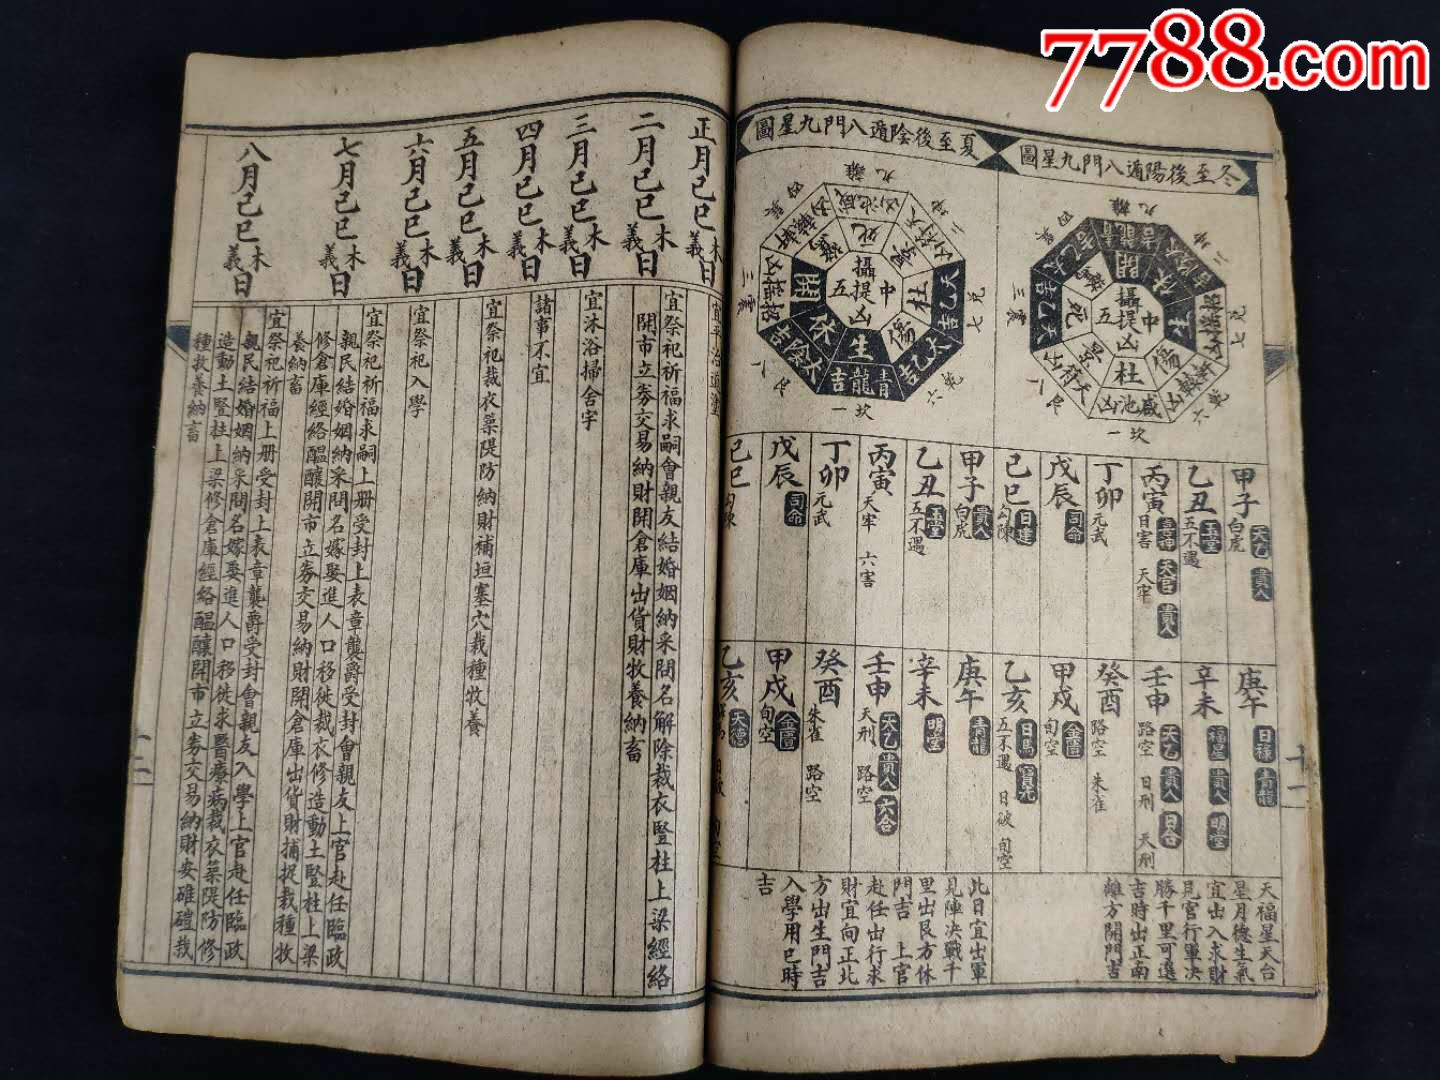 7788.com
冬至後陽遁八門九星圖
九離
二坤
七兌
六乾
一坎
八艮
三震
四巽
中五
攝提凶
開
休
生
傷
杜
景
死
驚
青龍吉
太陰吉
招搖凶
軒轅凶
咸池凶
天符凶
太乙吉
夏至後陰遁八門九星圖
九離
二坤
七兌
六乾
一坎
八艮
三震
四巽
中五
攝提凶
死
景
杜
傷
生
休
開
驚
咸池凶
太乙吉
青龍吉
太陰吉
招搖凶
軒轅凶
甲子 白虎 天乙 貴人
乙丑 五不遇 玉堂
丙寅 日害 天牢 天官 貴人
丁卯 元武
戊辰 司命
己巳 勾陳 日建
庚午 日祿 青龍
辛未 福星 貴人 明堂
壬申 路空 日刑 天刑 天乙 貴人 日合
癸酉 路空 朱雀
甲戌 旬空 金匱
乙亥 五不遇 日破 旬空 日馬 寶光
天福星天台
星月德生氣
宜出入求財
見官行軍决
勝千里可選
吉時出正南
離方開門吉
甲子 白虎 貴人
乙丑 五不遇 玉堂
丙寅 天牢 六害
丁卯 元武
戊辰 司命
己巳 勾陳
庚午 青龍
辛未 明堂
壬申 天刑 路空 天乙 貴人 六合
癸酉 朱雀 路空
甲戌 旬空 金匱
乙亥 天德 旬空
此日宜出軍
見陣决戰千
里出艮方休
門吉 上官
赴任出行求
財宜向正北
方出生門吉
入學用巳時
吉
十一
正月己巳木義日
宜平治道塗
二月己巳木義日
宜祭祀祈福求嗣會親友結婚姻納采問名解除裁衣豎柱上梁經絡
開市立劵交易納財開倉庫出貨財牧養納畜
三月己巳木義日
宜沐浴掃舍宇
四月己巳木義日
諸事不宜
五月己巳木義日
宜祭祀裁衣築隄防納財補垣塞穴栽種牧養
六月己巳木義日
宜祭祀入學
七月己巳木義日
宜祭祀祈福求嗣上册受封上表章襲爵受封會親友上官赴任臨政
親民結婚姻納采問名嫁娶進人口移徙裁衣修造動土豎柱上梁
修倉庫經絡醞釀開市立劵交易納財開倉庫出貨財捕捉栽種牧
養納畜
八月己巳木義日
宜祭祀祈福上册受封上表章襲爵受封會親友入學上官赴任臨政
親民結婚姻納采問名嫁娶進人口移徙求醫療病裁衣築隄防修
造動土豎柱上梁修倉庫經絡醞釀開市立劵交易納財安碓磑栽
種牧養納畜
十二